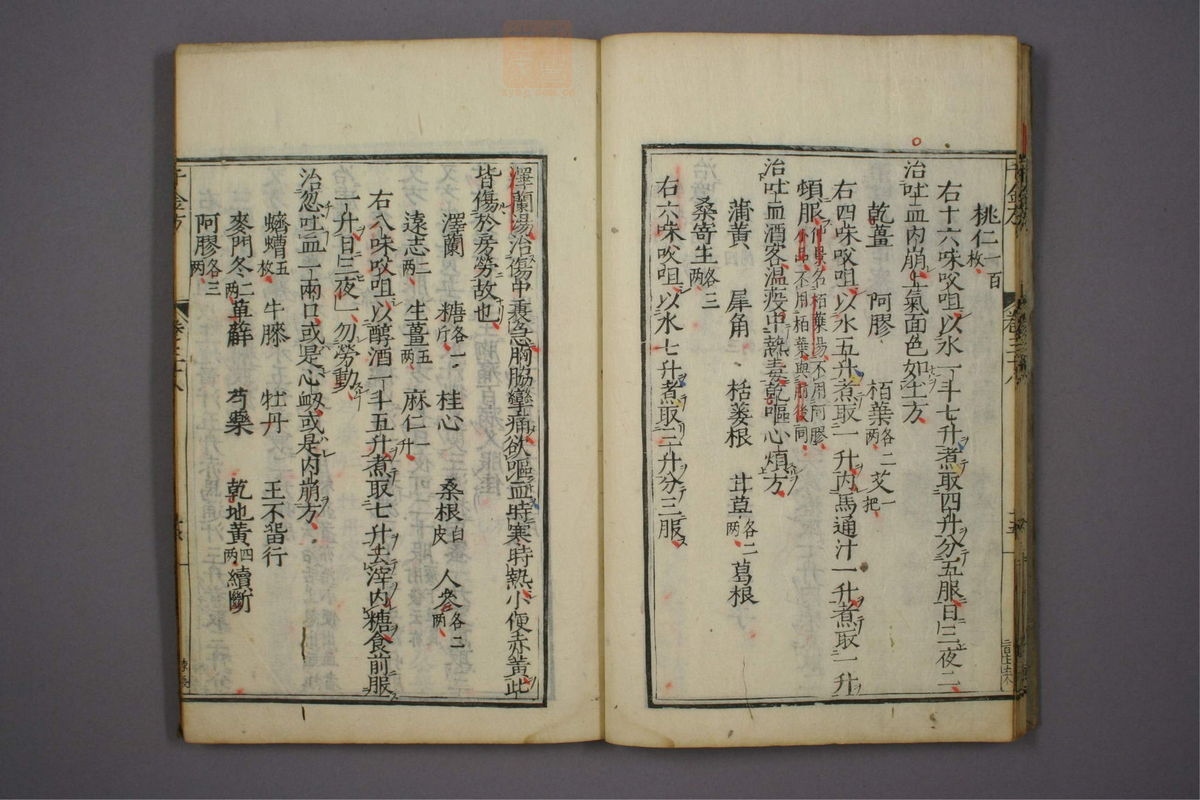 桃仁一百枚
右十六味㕮咀以水一斗七升煮取四升分五服日三夜二
治吐血内崩上氣面色如土方
乾薑 阿膠 栢葉各二两 艾一把
右四味㕮咀以水五升煮取一升内馬通汁一升煮取一升
頓服仲景名栢葉湯不用阿膠小品不用栢葉與前後同
治吐血酒客温疫中熱毒乾嘔心煩方
蒲黄 犀角 栝蔞根 甘草各二两 葛根
桑寄生各三两
右六味㕮咀以水七升煮取三升分三服
澤蘭湯治傷中裏急胸脇攣痛欲嘔血時寒時熱小便赤黄此
皆傷於房勞故也
澤蘭 糖各一斤 桂心 桑根白皮 人參各二两
遠志二两 生薑五两 麻仁一升
右八味㕮咀以醇酒一斗五升煮取七升去滓内糖食前服
一升日三夜一勿勞動
治忽吐血一兩口或是心衂或是内崩方
蠐螬五枚 牛膝 牡丹 王不留行
麥門冬二两 萆薢 芍藥 乾地黄四两 續斷
阿膠各三两
千金方 卷三十八